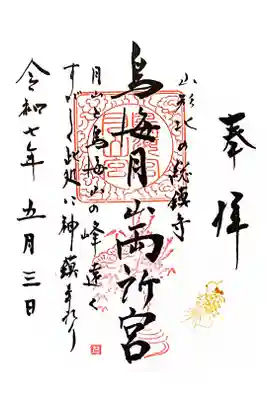 奉拝
山形北の総鎮守
鳥海月山両所宮
月山と鳥海山の峰遠く
すがしく此処に神鎮まれり
令和七年 五月三日